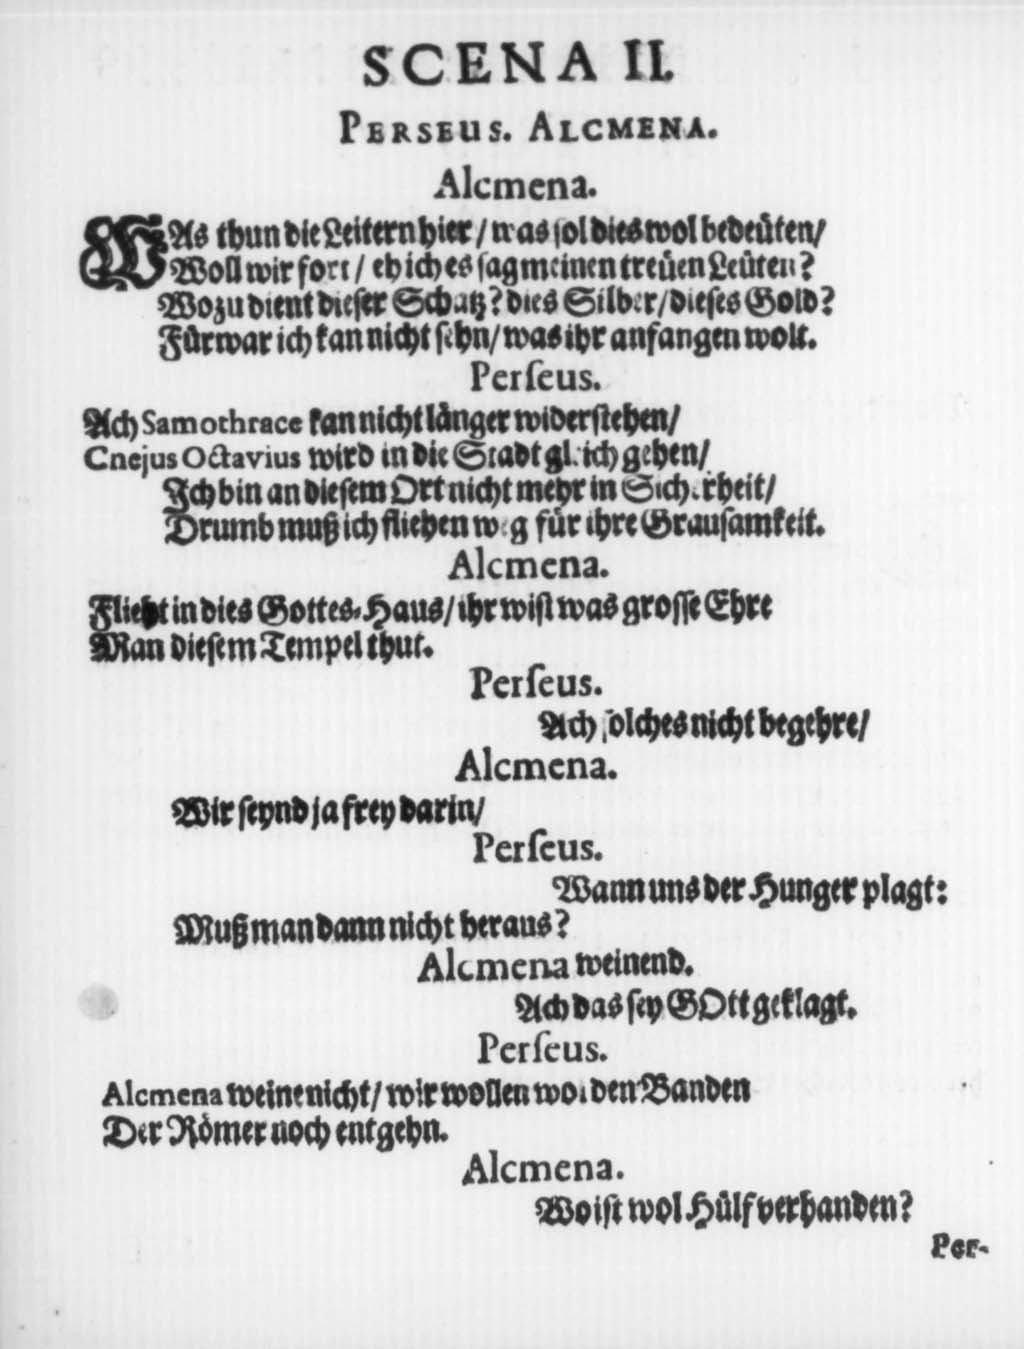 SCENA II.
PERSEUS. ALCMENA.
Alcmena.
WAs thun die Leitern hier / was sol dies wol bedeüten /
Woll wir fort / eh ich es sag meinen treüen Leüten?
Wozu dient dieser Schatz? dies Silber / dieses Gold?
Fürwar ich kan nicht sehn / was ihr anfangen wolt.
Perſeus.
Ach Samothrace kan nicht länger widerstehen /
Cnejus Octavius wird in die Stadt gleich gehen /
Ich bin an diesem Ort nicht mehr in Sicherheit /
Drumb muß ich fliehen weg für ihre Grausamkeit.
Alcmena.
Flieht in dies Gottes-Haus / ihr wist was grosse Ehre
Man diesem Tempel thut.
Perſeus.
Ach solches nicht begehre /
Alcmena.
Wir seynd ja frey darin /
Perſeus.
Wann uns der Hunger plagt:
Muß man dann nicht heraus?
Alcmena weinend.
Ach das sey GOtt geklagt.
Perſeus.
Alcmena weine nicht / wir wollen wol den Banden
Der Römer noch entgehn.
Alcmena.
Wo ist wol Hülf verhanden?
Per-